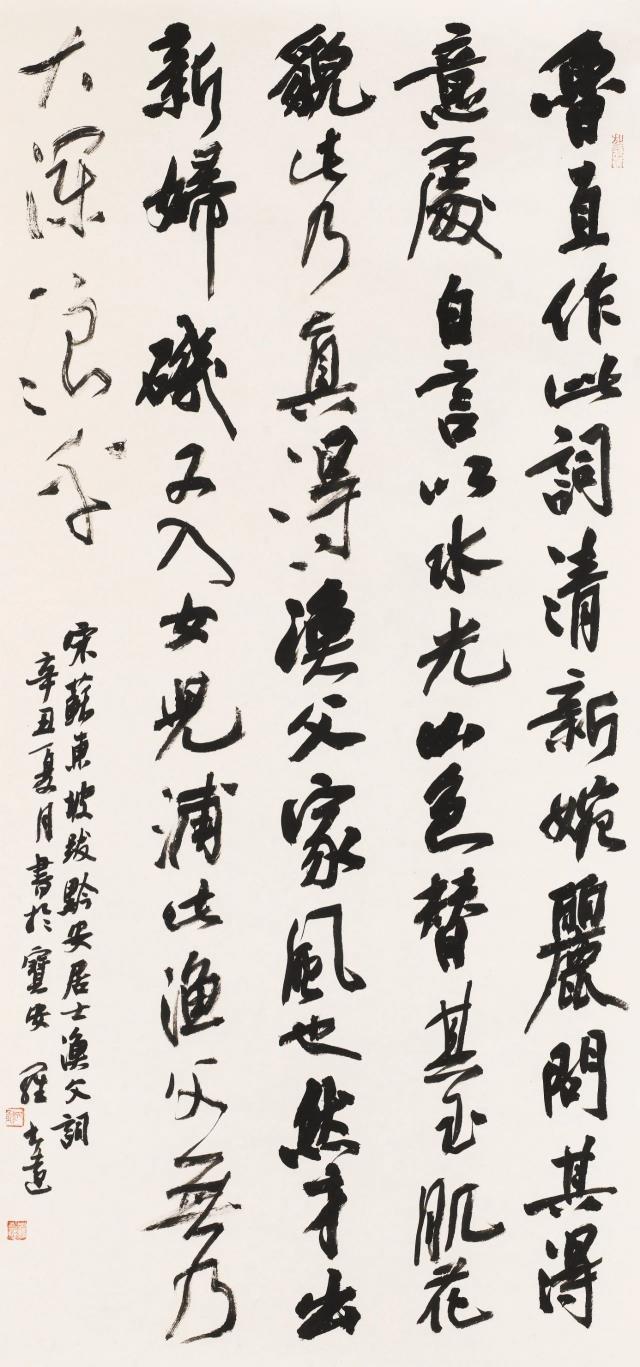 魯直作此詞清新婉麗問其得
意處自言以水光山色替其玉肌花
貌此乃真得漁父家風也然才出
新婦磯又入女兒浦此漁父無乃
大瀾浪乎
宋蘇東坡跋黔安居士漁父詞
辛丑夏月書於寶安 羅